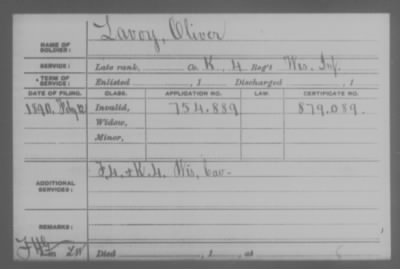 NAME OF SOLDIER: Lavoy, Oliver
SERVICE: Late rank, Co. K, 4 Reg't Wis. Inf.
*TERM OF SERVICE: Enlisted , 1 Discharged , 1
DATE OF FILING. CLASS. APPLICATION NO. LAW. CERTIFICATE NO.
1890, Invalid, 754.889 879.089.
Widow,
Minor,
ADDITIONAL SERVICES: F.4. & K.4. Wis. Cav.
REMARKS:
Died , 1 , at